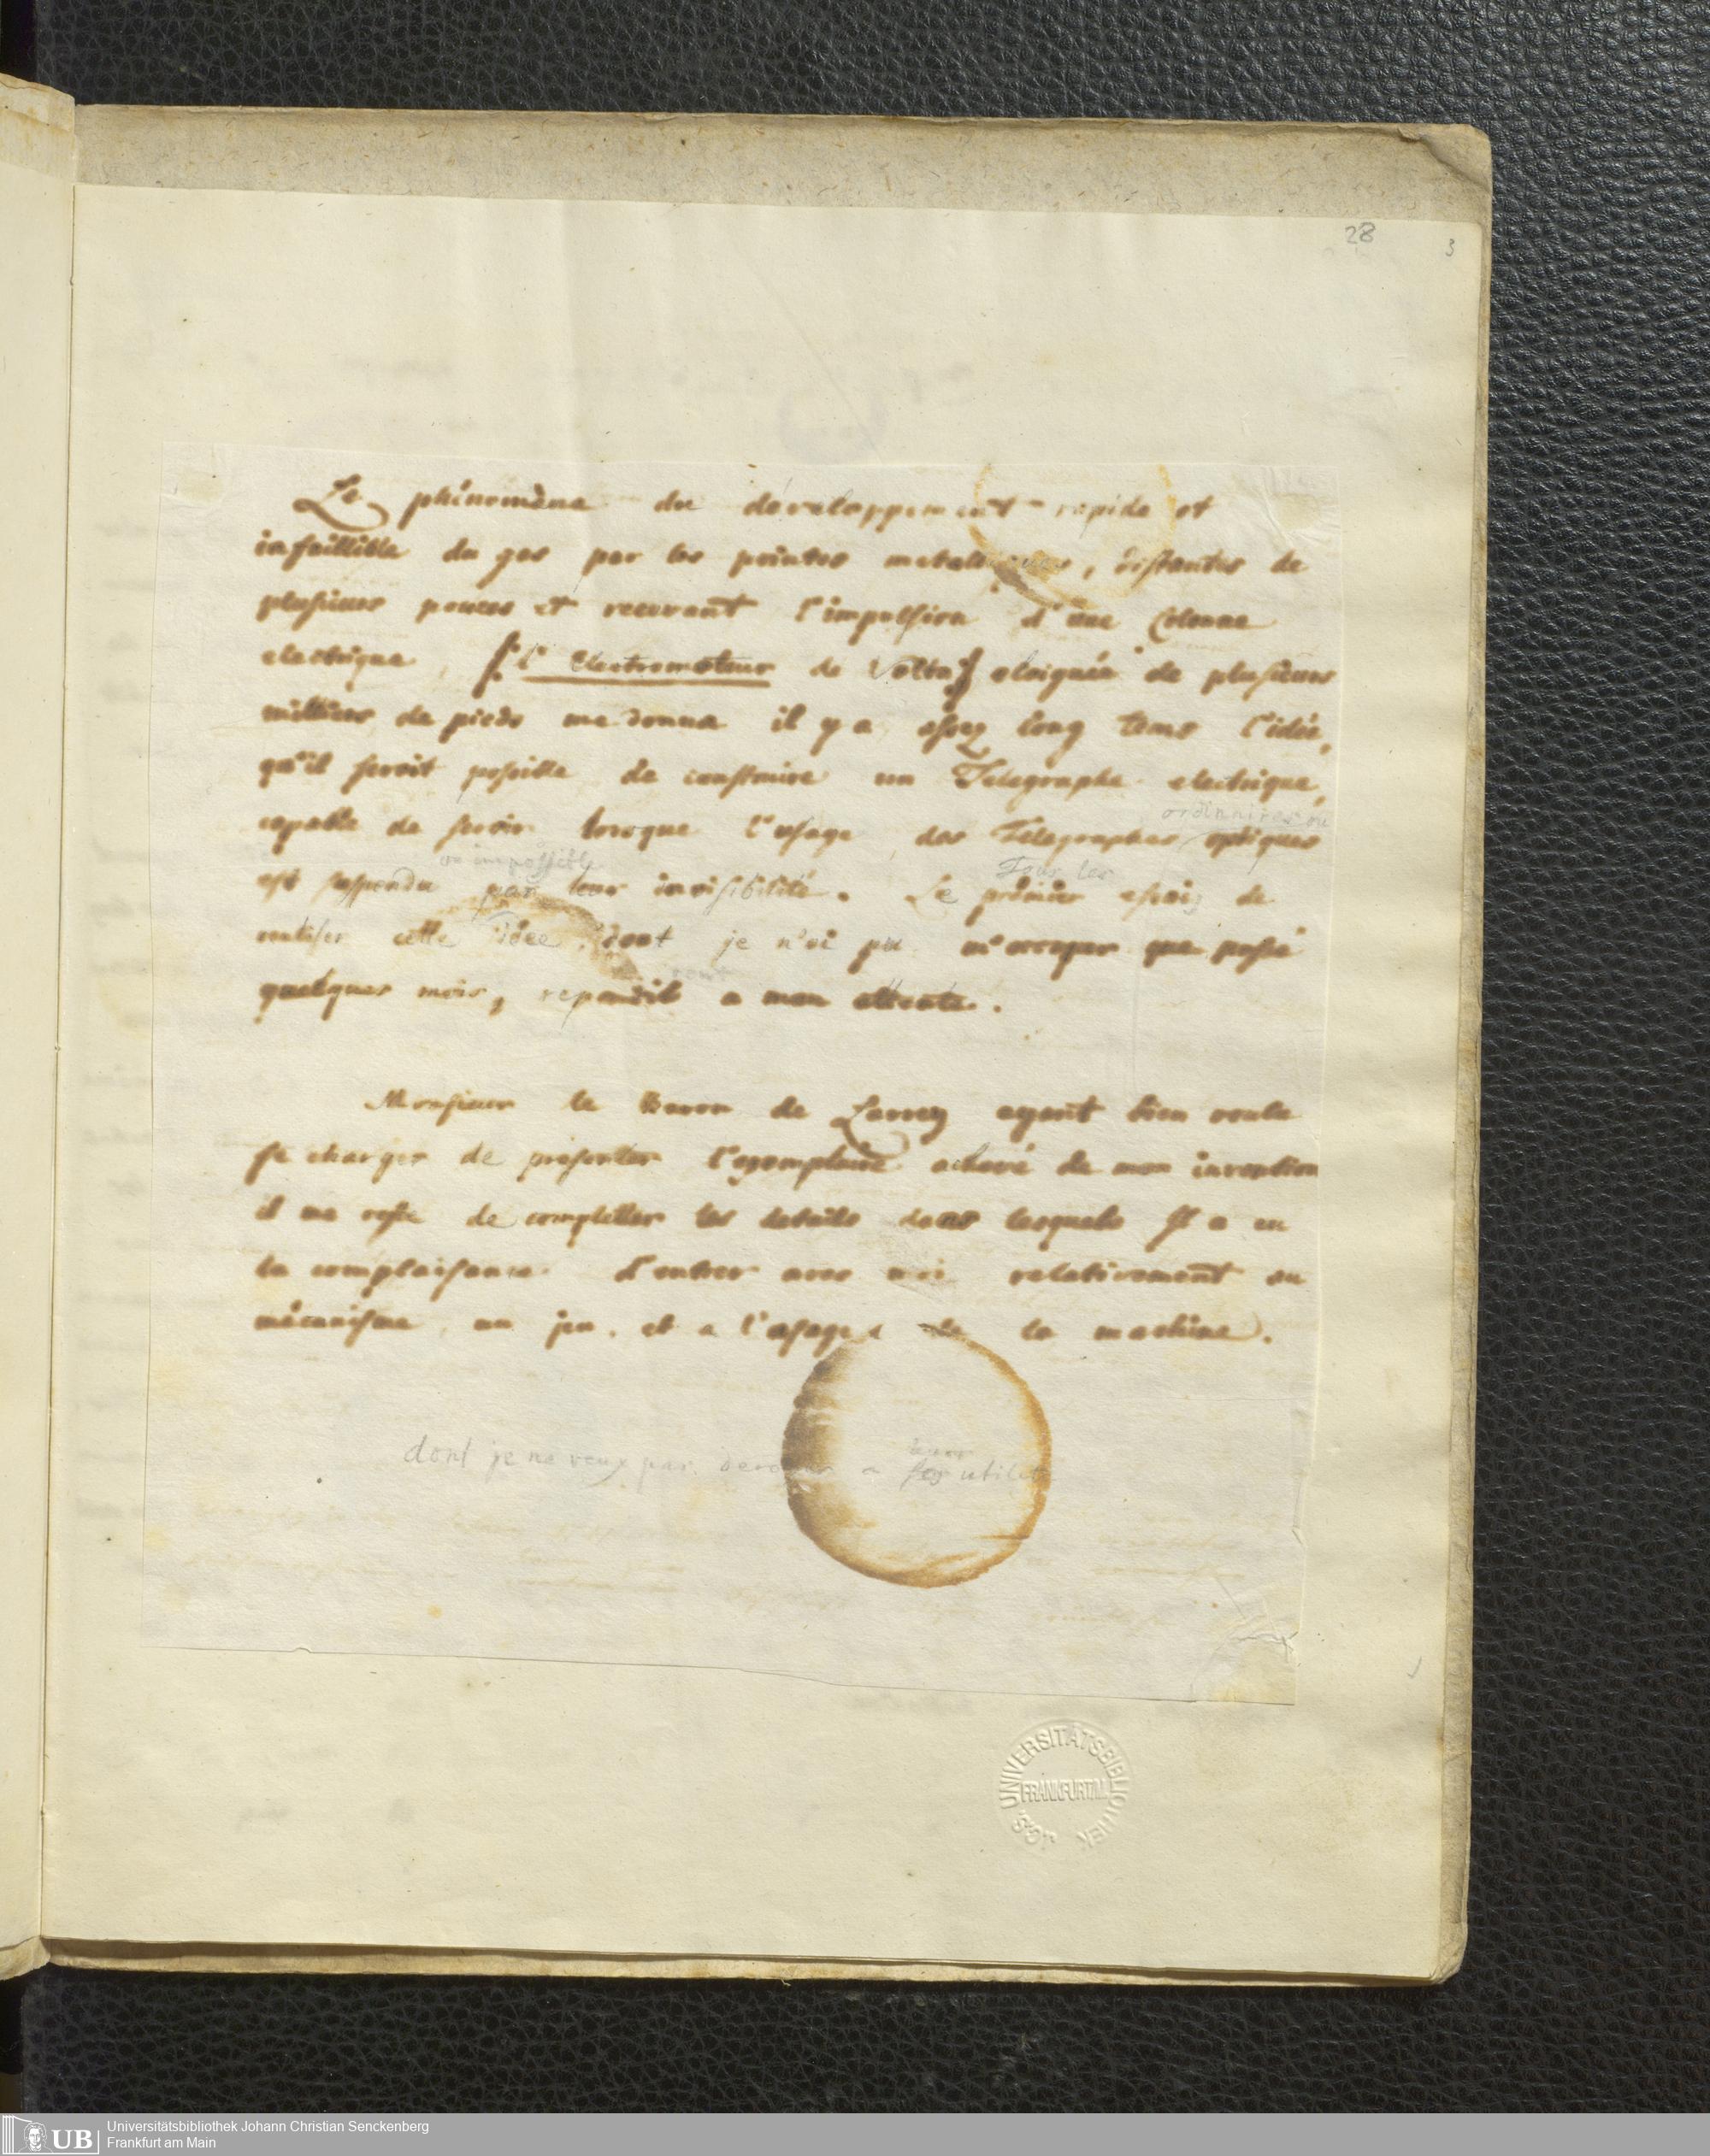 28
3
Le phénomène du développement rapide et
infaillible du gas par les pointes metalliques, distantes de
plusieurs pouces et recevant l'impulsion d'une Colonne
electrique, (: l'Electromoteur de Volta :) eloignée de plusieurs
milliers de pieds me donna il y a assez long tems l'idée,
qu'il seroit possible de construire un Telegraphe electrique,
ordinnaires ou
capable de servir lorsque l'usage des Telegraphes optiques
ou impossible
Tous les
est suspendu par leur invisibilité. Le prémier essais de
realiser cette idée, dont je n'ai pu m'occuper que passé
rent
quelques mois, repondit a mon attente.
Monsieur le Baron de Larrey ayant bien voulu
se charger de presenter l'exemplaire achevé de mon invention
il me reste de completter les details dans lesquels Il a eu
la complaisance d'entrer avec moi relativement au
mécanisme, au jeu, et a l'usage de la machine.
dont je ne veux pas a utilité
UNIVERSITÄTSBIBLIOTHEK
FRANKFURT/M.
J.C.S.
UB
Universitätsbibliothek Johann Christian Senckenberg
Frankfurt am Main